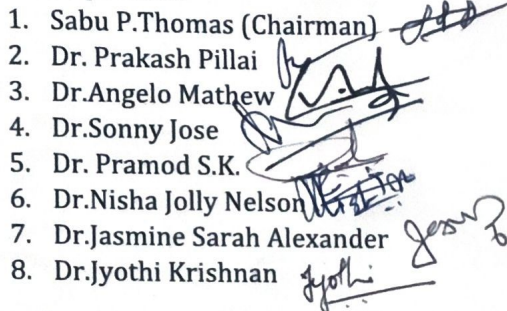 1. Sabu P.Thomas (Chairman)
2. Dr. Prakash Pillai
3. Dr.Angelo Mathew
4. Dr.Sonny Jose
5. Dr. Pramod S.K.
6. Dr.Nisha Jolly Nelson
7. Dr.Jasmine Sarah Alexander
8. Dr.Jyothi Krishnan Jyothi